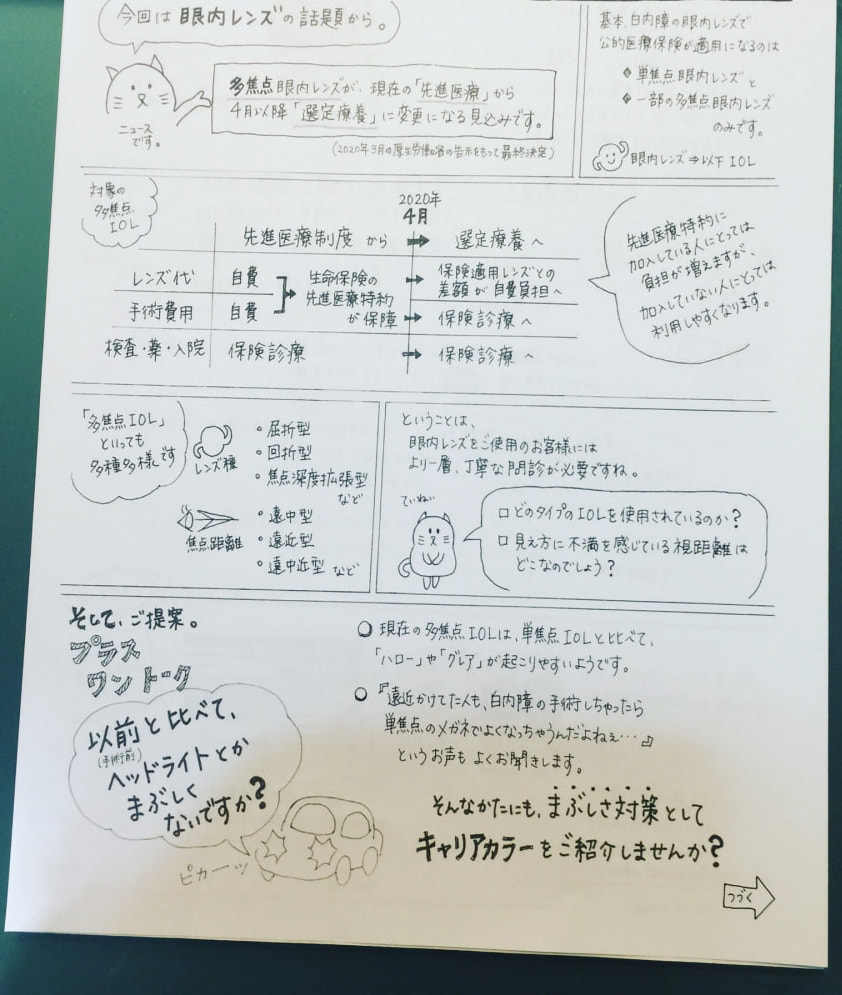 今回は眼内レンズの話題から。
ニュース
です。
多焦点眼内レンズが、現在の「先進医療」から
4月以降「選定療養」に変更になる見込みです。
(2020年3月の厚生労働省の告示をもって最終決定)
基本、白内障の眼内レンズで
公的医療保険が適用になるのは
◆単焦点眼内レンズと
◆一部の多焦点眼内レンズ
のみです。
眼内レンズ⇒以下IOL
対象の
多焦点
IOL
2020年
4月
先進医療制度 から ➡ 選定療養へ
レンズ代 自費 生命保険の 保険適用レンズとの
先進医療特約 差額が自費負担へ
手術費用 自費 が保障 ➡ 保険診療へ
検査・薬・入院 保険診療 ➡ 保険診療へ
先進医療特約に
加入している人にとっては
負担が増えますが、
加入していない人にとっては
利用しやすくなります。
「多焦点IOL」
といっても
多種多様です
レンズ種
・屈折型
・回折型
・焦点深度拡張型
など
焦点距離
・遠中型
・遠近型
・遠中近型 など
ということは、
眼内レンズをご使用のお客様には
より一層、丁寧な問診が必要ですね。
ていねい
□どのタイプのIOLを使用されているのか?
□見え方に不満を感じている視距離は
どこなのでしょう?
そして、ご提案。
プラス
ワントーク
以前と比べて、
(手術前)
ヘッドライトとか
まぶしく
ないですか?
ピカーッ
○ 現在の多焦点IOLは、単焦点IOLと比べて、
「ハロー」や「グレア」が起こりやすいようです。
○ 『遠近かけてた人も、白内障の手術しちゃったら
単焦点のメガネでよくなっちゃうんだよねぇ…』
というお声もよくお聞きします。
そんなかたにも、まぶしさ対策として
キャリアカラーをご紹介しませんか?
つづく